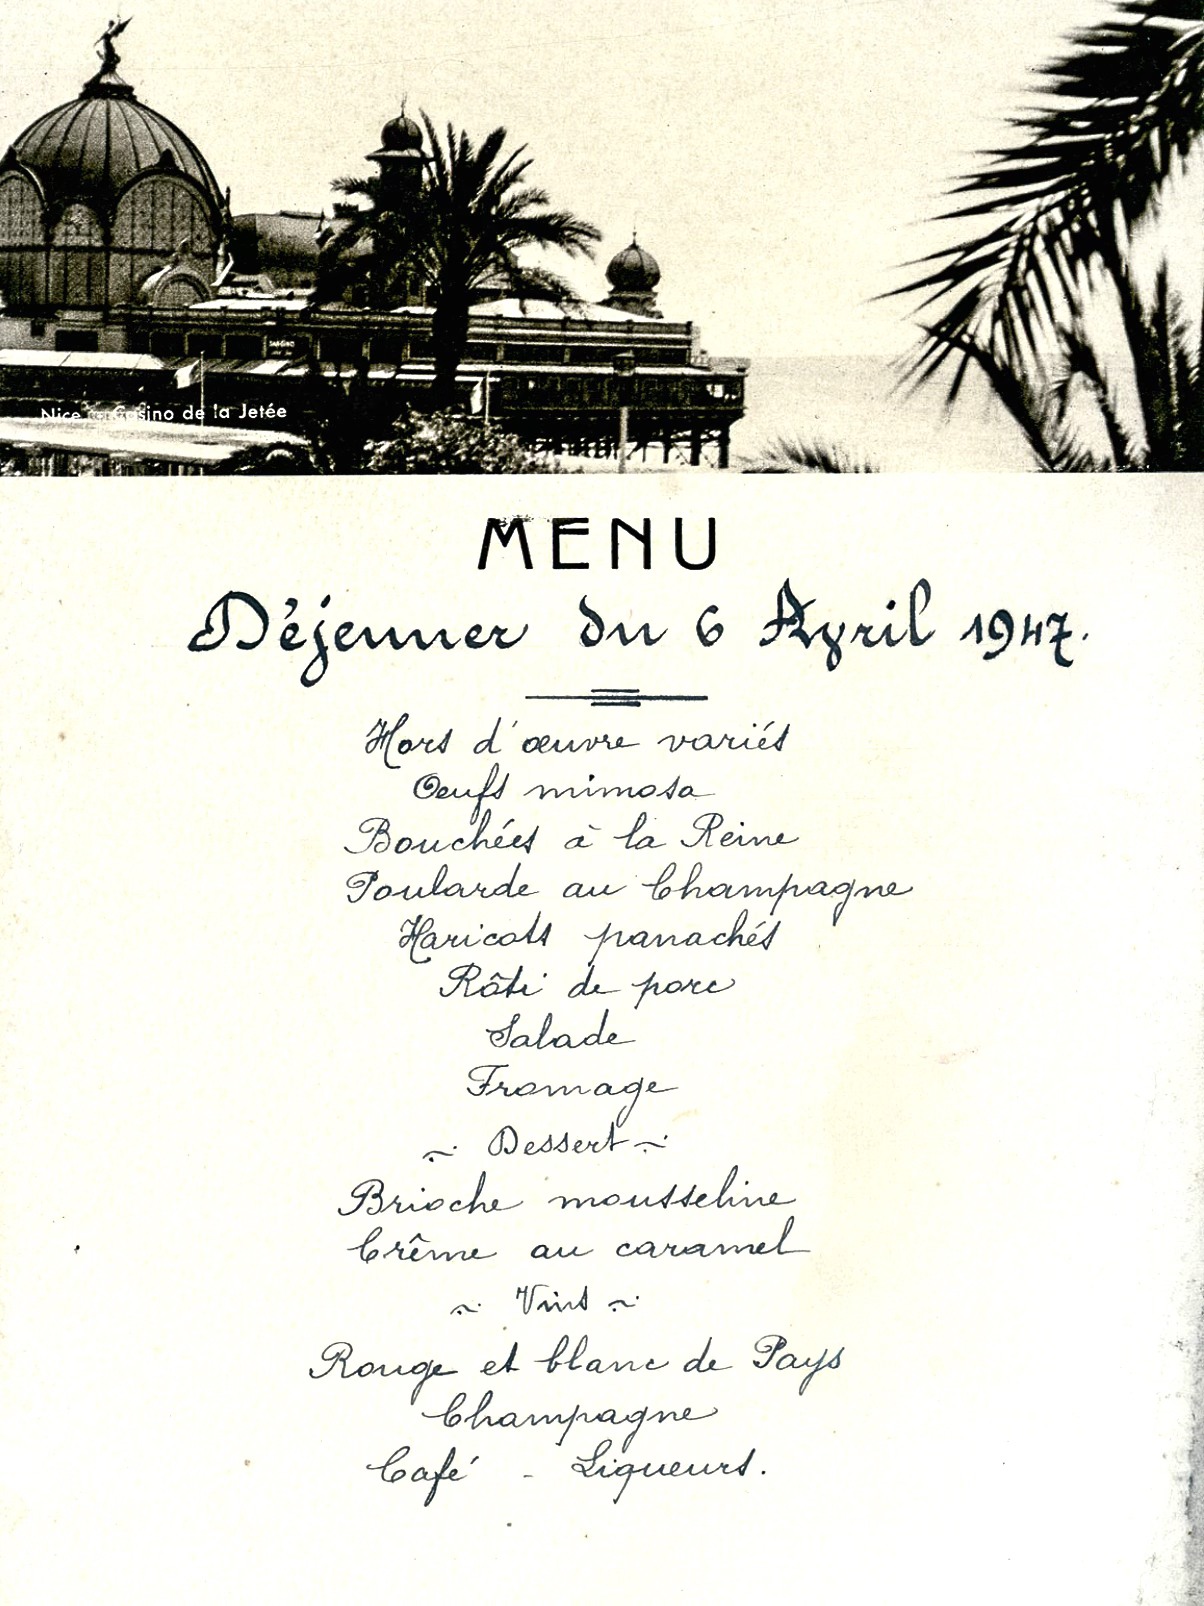 CASINO
Nice Casino de la Jetée
MENU
Déjeuner du 6 Avril 1947.
Hors d'œuvre variés
Oeufs mimosa
Bouchées à la Reine
Poularde au Champagne
Haricots panachés
Rôti de porc
Salade
Fromage
~ Dessert ~
Brioche mousseline
Crême au caramel
~ Vins ~
Rouge et blanc de Pays
Champagne
Café - Liqueurs.